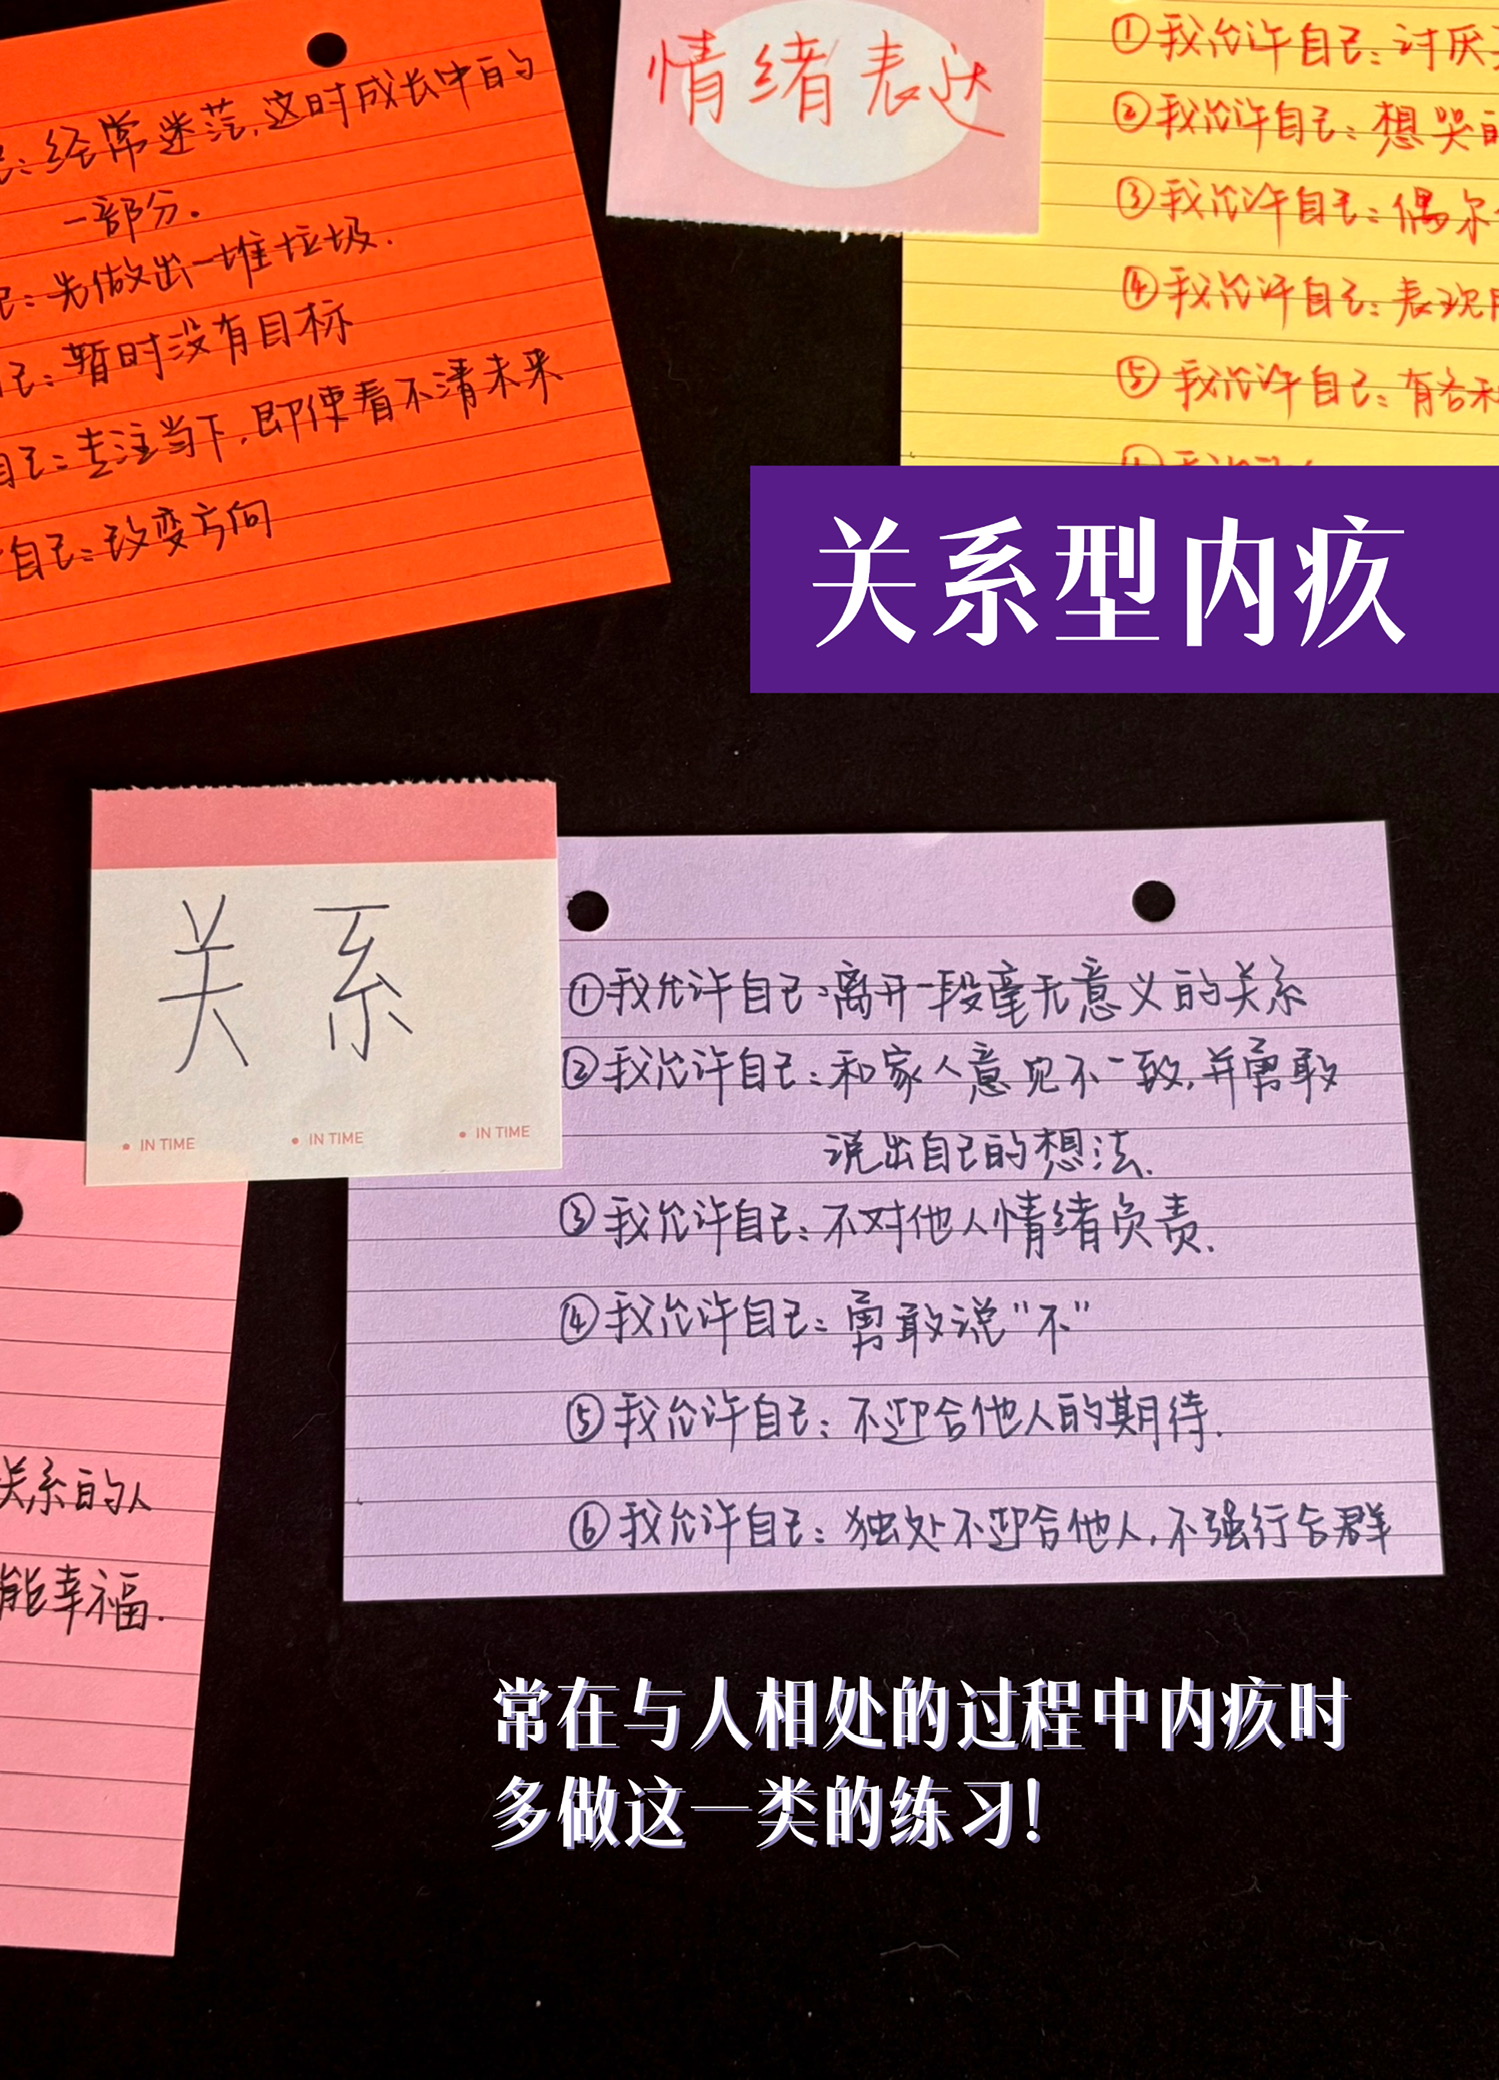 己:经常迷茫,这时成长中的
一部分.
己:先做出一堆垃圾.
己:暂时没有目标
自己:专注当下,即使看不清未来
自己:改变方向
情绪表达
①我允许自己:讨厌
②我允许自己:想哭的
③我允许自己:偶尔
④我允许自己:表现
⑤我允许自己:有各种
关系型内疚
关系
• IN TIME • IN TIME • IN TIME
①我允许自己:离开一段毫无意义的关系
②我允许自己:和家人意见不一致,并勇敢
说出自己的想法.
③我允许自己:不对他人情绪负责.
④我允许自己:勇敢说“不”
⑤我允许自己:不迎合他人的期待.
⑥我允许自己:独处不迎合他人,不强行合群
关系的人
能幸福.
常在与人相处的过程中内疚时
多做这一类的练习!